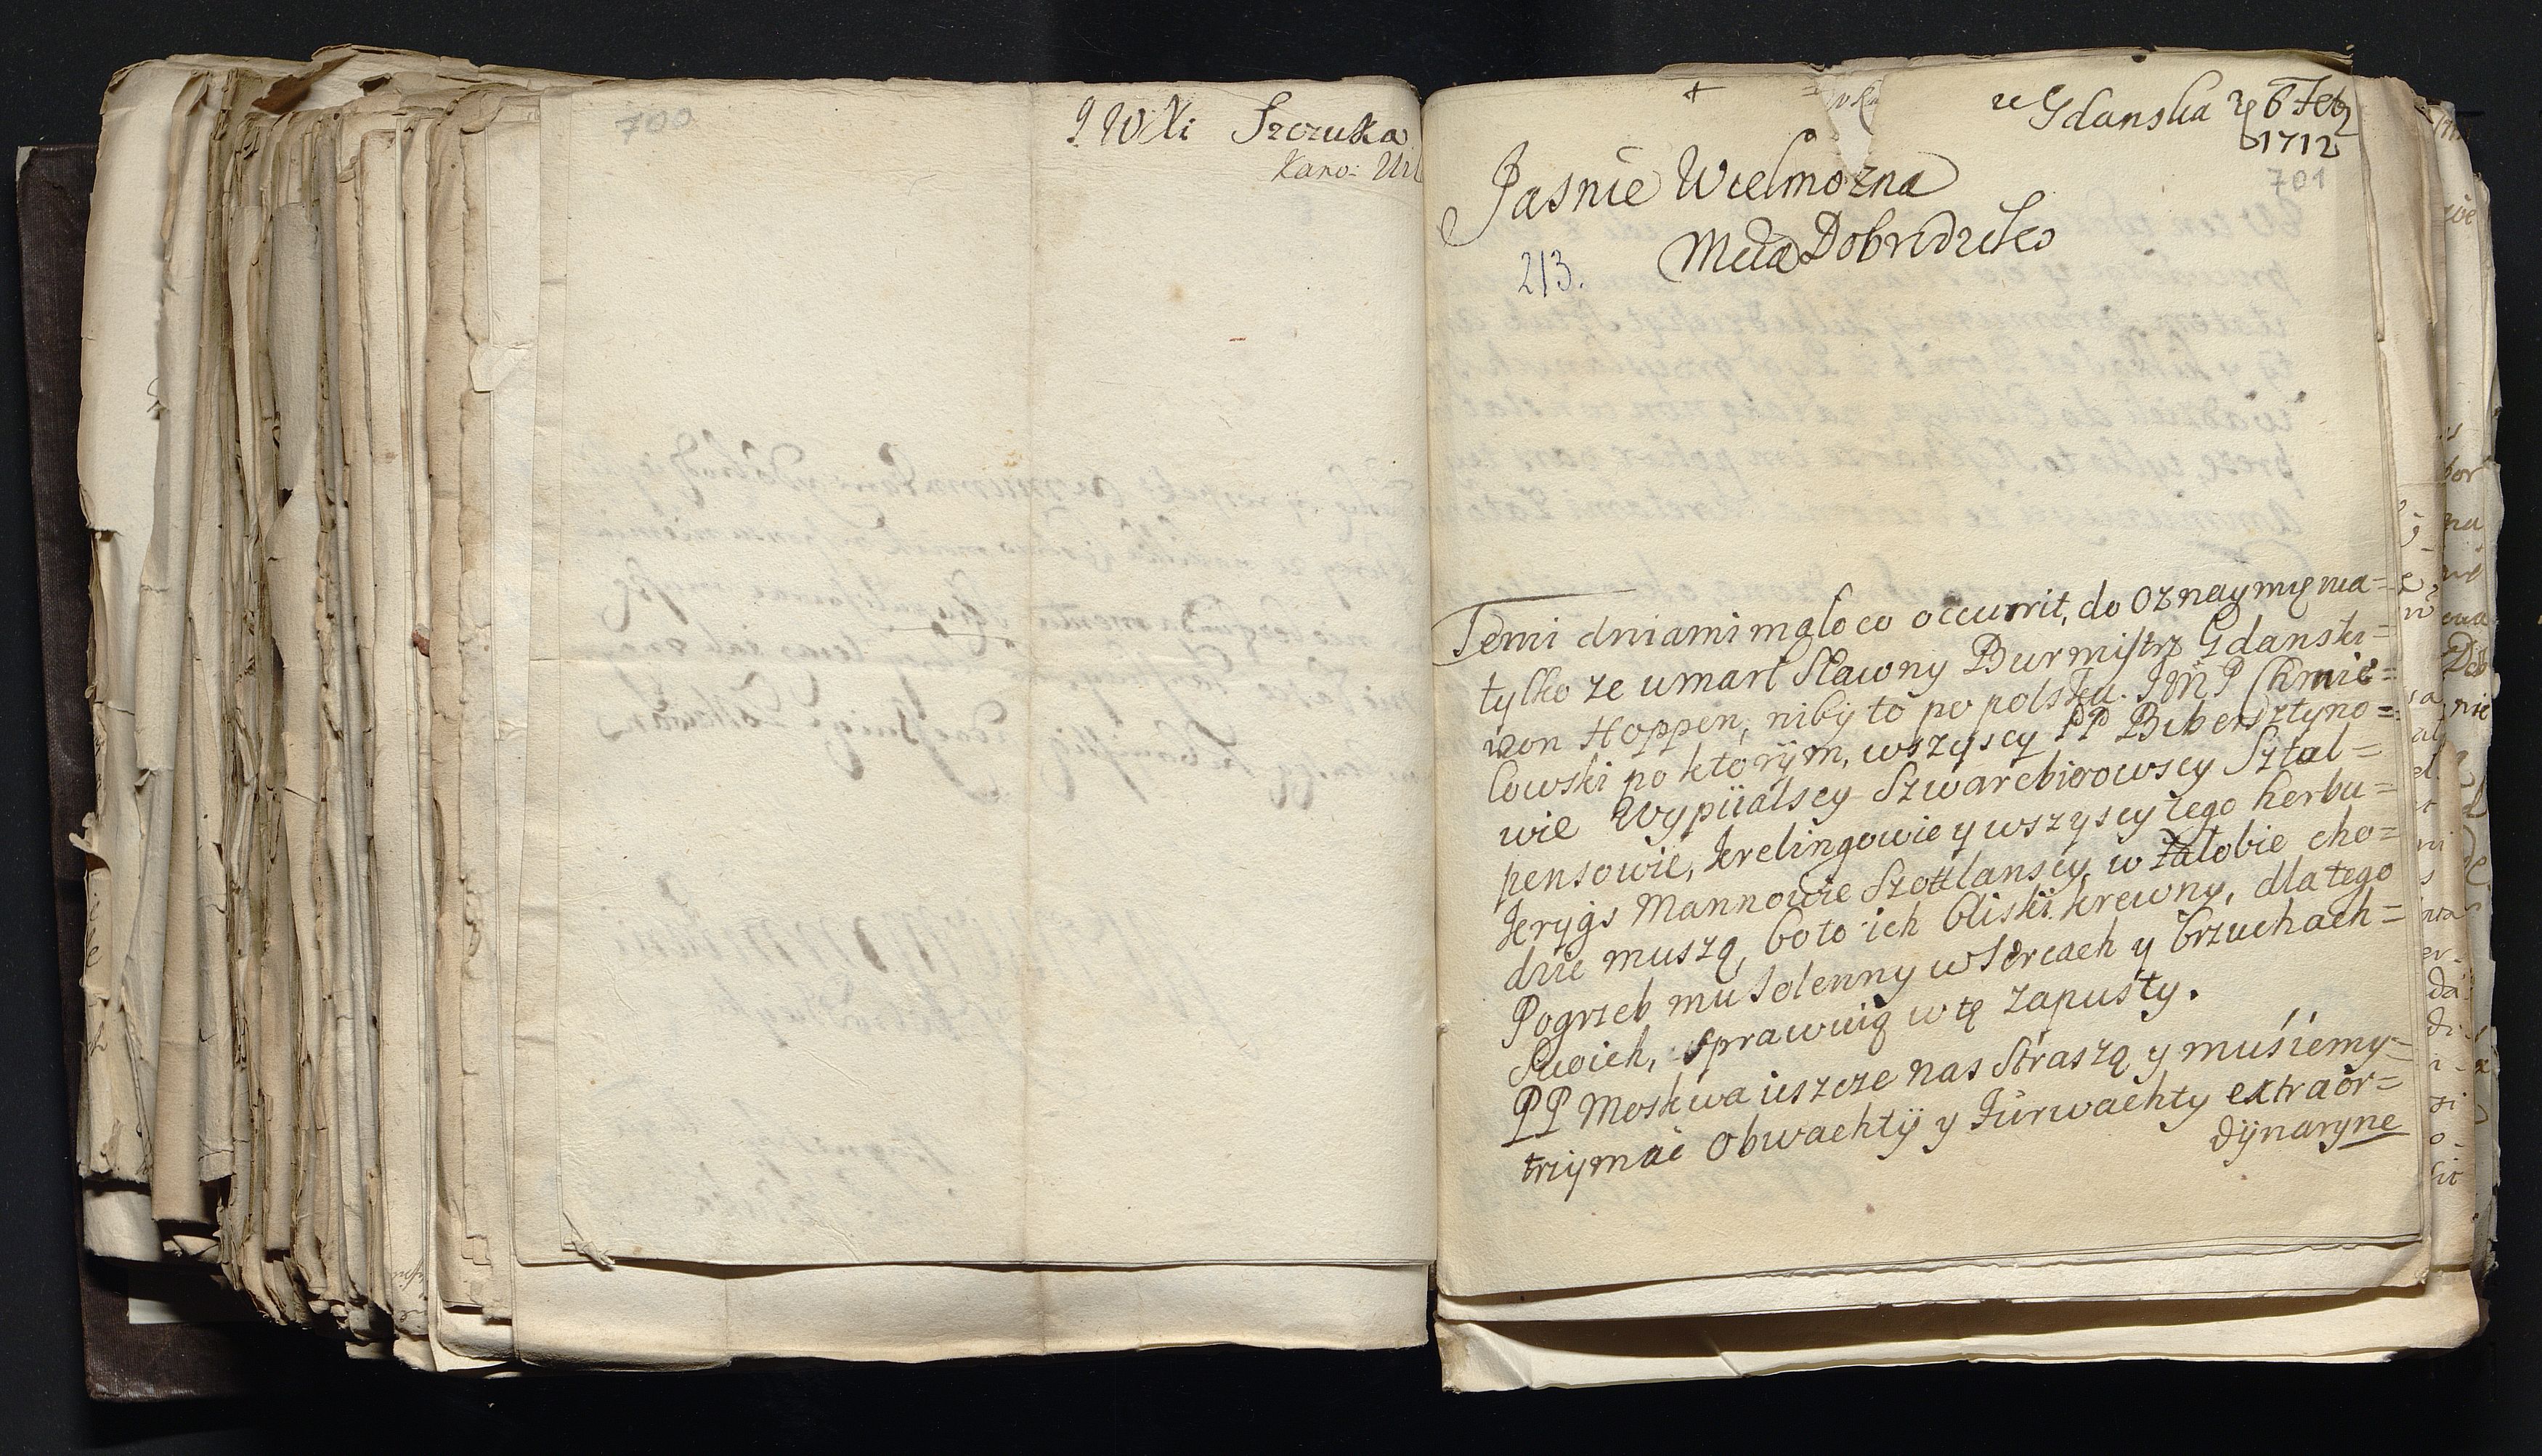 700
JWXi Szczuka
Kanc: Lit
z Gdanska 6 Feb
1712
701
Jasnie Wielmozna
Mcia Dobrodzieko
213.
Temi dniami malo co occurrit, do oznaymięnia=
tylko ze umarl Sławny Burmistrz Gdanski=
von Hoppen, niby to po polsku. JMP Chmie=
lowski po którÿm, wszyscy PP Bibersztyno=
wie Wypiialscy Szwarcbirowscy Sztal=
pensowie, Krelingowie y wszyscy tego herbu=
Jerygs Mannowie Szottlanscy, w Załobie cho=
dzic muszą, bo to ich bliski krewny, dlatego
Pogrzeb mu solenny w sercach y brzuchach=
Swoich, sprawuią w tę Zapusty.
PP Moskwa iszcze nas Straszą y musiemy=
trzymac Obwachtÿ y Furwachty extraor=
dÿnaryne